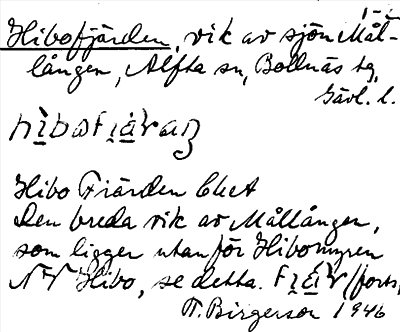 1-2
Hibofjärden, vik av sjön Mål-
lången, Alfta sn, Bollnäs tg,
Gävl. l.
Hibo Fiärden Ekst
Den breda vik av Mållången,
som ligger utanför Hibomyren
NV Hibo, se detta. (forts,
Birgerson 1946